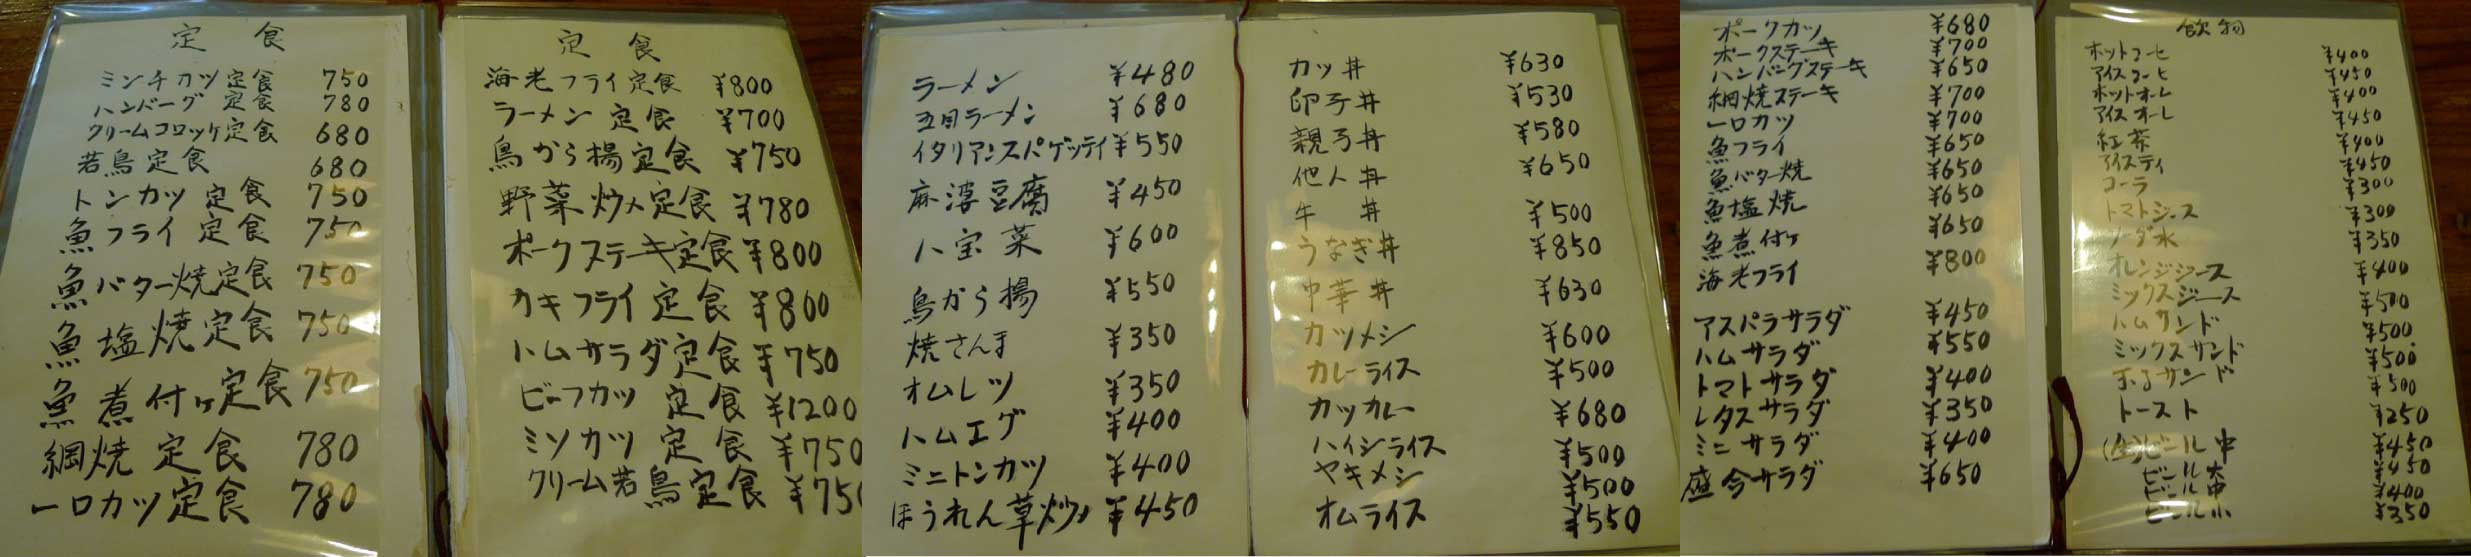 定食
ミンチカツ定食 750
ハンバーグ定食 780
クリームコロッケ定食 680
若鳥定食 680
トンカツ定食 750
魚フライ定食 750
魚バター焼定食 750
魚塩焼定食 750
魚煮付ヶ定食 750
網焼定食 780
一口カツ定食 780
定食
海老フライ定食 ¥800
ラーメン定食 ¥700
鳥から揚定食 ¥750
野菜炒メ定食 ¥780
ポークステーキ定食 ¥800
カキフライ定食 ¥800
ハムサラダ定食 ¥750
ビーフカツ定食 ¥1200
ミソカツ定食 ¥750
クリーム若鳥定食 ¥750
ラーメン ¥480
五目ラーメン ¥680
イタリアンスパゲッティ ¥550
麻婆豆腐 ¥450
八宝菜 ¥600
鳥から揚 ¥550
焼さんま ¥350
オムレツ ¥350
ハムエグ ¥400
ミニトンカツ ¥400
ほうれん草炒メ ¥450
カツ丼 ¥630
卵子丼 ¥530
親子丼 ¥580
他人丼 ¥650
牛丼 ¥500
うなぎ丼 ¥850
中華丼 ¥630
カツメシ ¥600
カレーライス ¥500
カツカレー ¥680
ハイシライス ¥500
ヤキメシ ¥500
オムライス ¥550
ポークカツ ¥680
ポークステーキ ¥700
ハンバングステーキ ¥650
網焼ステーキ ¥700
一口カツ ¥700
魚フライ ¥650
魚バター焼 ¥650
魚塩焼 ¥650
魚煮付ヶ ¥650
海老フライ ¥800
アスパラサラダ ¥450
ハムサラダ ¥550
トマトサラダ ¥400
レタスサラダ ¥350
ミニサラダ ¥400
盛合サラダ ¥650
飲物
ホットコーヒ ¥400
アイスコーヒ ¥450
ホットオーレ ¥400
アイスオーレ ¥450
紅茶 ¥400
アイスティ ¥450
コーラ ¥300
トマトジュース ¥300
ソーダ水 ¥350
オレンジジュース ¥400
ミックスジュース ¥500
ハムサンド ¥500
ミックスサンド ¥500
玉子サンド ¥500
トースト ¥250
(生)ビール中 ¥450
ビール大 ¥450
ビール中 ¥400
ビール小 ¥350